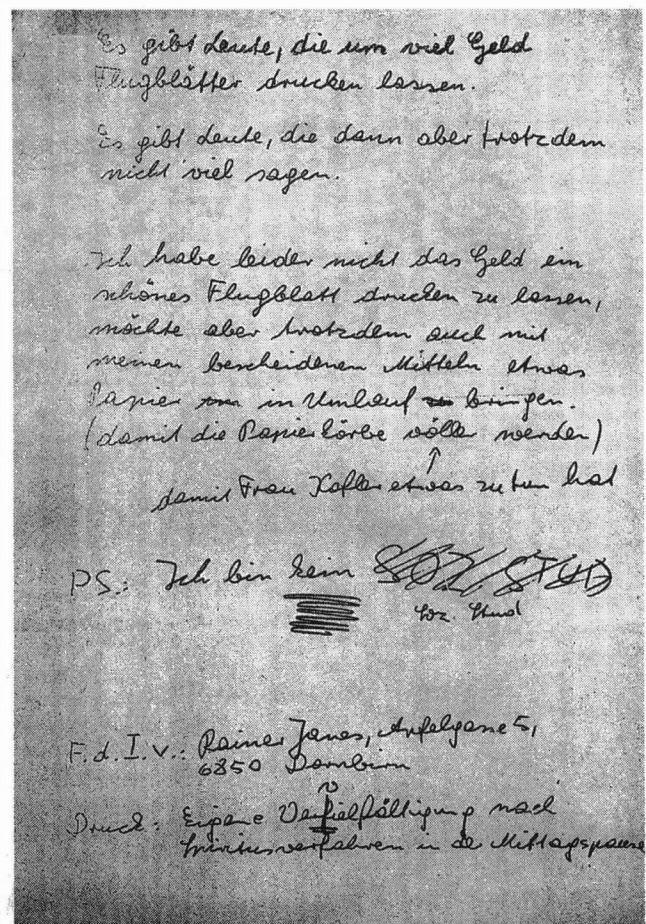 Es gibt Leute, die um viel Geld
Flugblätter drucken lassen.
Es gibt Leute, die dann aber trotzdem
nicht viel sagen.
Ich habe leider nicht das Geld ein
schönes Flugblatt drucken zu lassen,
möchte aber trotzdem auch mit
meinen bescheidenen Mitteln etwas
Papier in Umlauf bringen.
(damit die Papierkörbe völler werden)
damit Frau Kofler etwas zu tun hat
PS.: Ich bin kein SOZ/STUD
Soz. Stud
F.d.I.v.: Rainer Janes, Apfelgasse 5,
6850 Dornbirn
v
Druck: Eigene Verfielfältigung nach
Spiritusverfahren in der Mittagspause